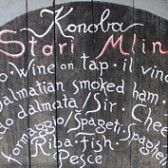 Konoba
Stari Mlin
o. Wine on tap. il vino
Dalmatian smoked ham
to dalmata/Sir. Che
formaggio/Špageti. Spagh
Riba. Fish.
Pesce